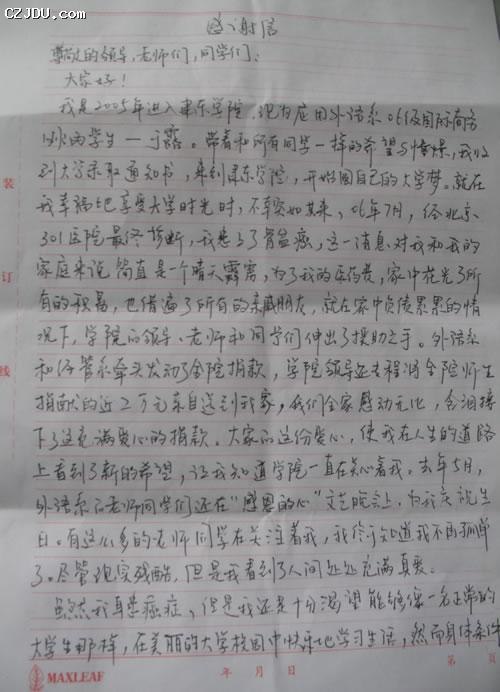 CZJDU.COM
感谢信
尊敬的领导、老师们、同学们：
大家好！
我是2005年进入建东学院，现为应用外语系06级国际商务
班的学生——于露。带着和所有同学一样的希望与憧憬，我收
到大学录取通知书，来到建东学院，开始圆自己的大学梦。就在
我幸福地享受大学时光时，不幸突如其来，06年7月，经北京
301医院最终诊断，我患了骨盆癌，这一消息对我和我的
家庭来说简直是一个晴天霹雳，为了我的医药费，家中花光了所
有的积蓄，也借遍了所有的亲戚朋友，就在家中负债累累的情
况下，学院的领导、老师和同学们伸出了援助之手。外语系
和经管系牵头发动了全院捐款，学院领导还专程将全院师生
捐献的近2万元亲自送到我家，我们全家感动无比，含泪接
下了这充满爱心的捐款。大家的这份爱心，使我在人生的道路
上看到了新的希望，让我知道学院一直在关心着我。去年5月，
外语系的老师同学们还在“感恩的心”文艺晚会上，为我庆祝生
日。有这么多的老师同学在关注着我，我终于知道我不再孤单
了。尽管现实残酷，但是我看到了人间处处充满真爱。
虽然我身患癌症，但是我还是十分渴望能够像一名正常的
大学生那样，在美丽的大学校园中快乐地学习生活，然而身体条件
装
订
线
MAXLEAF
年 月 日
第 页